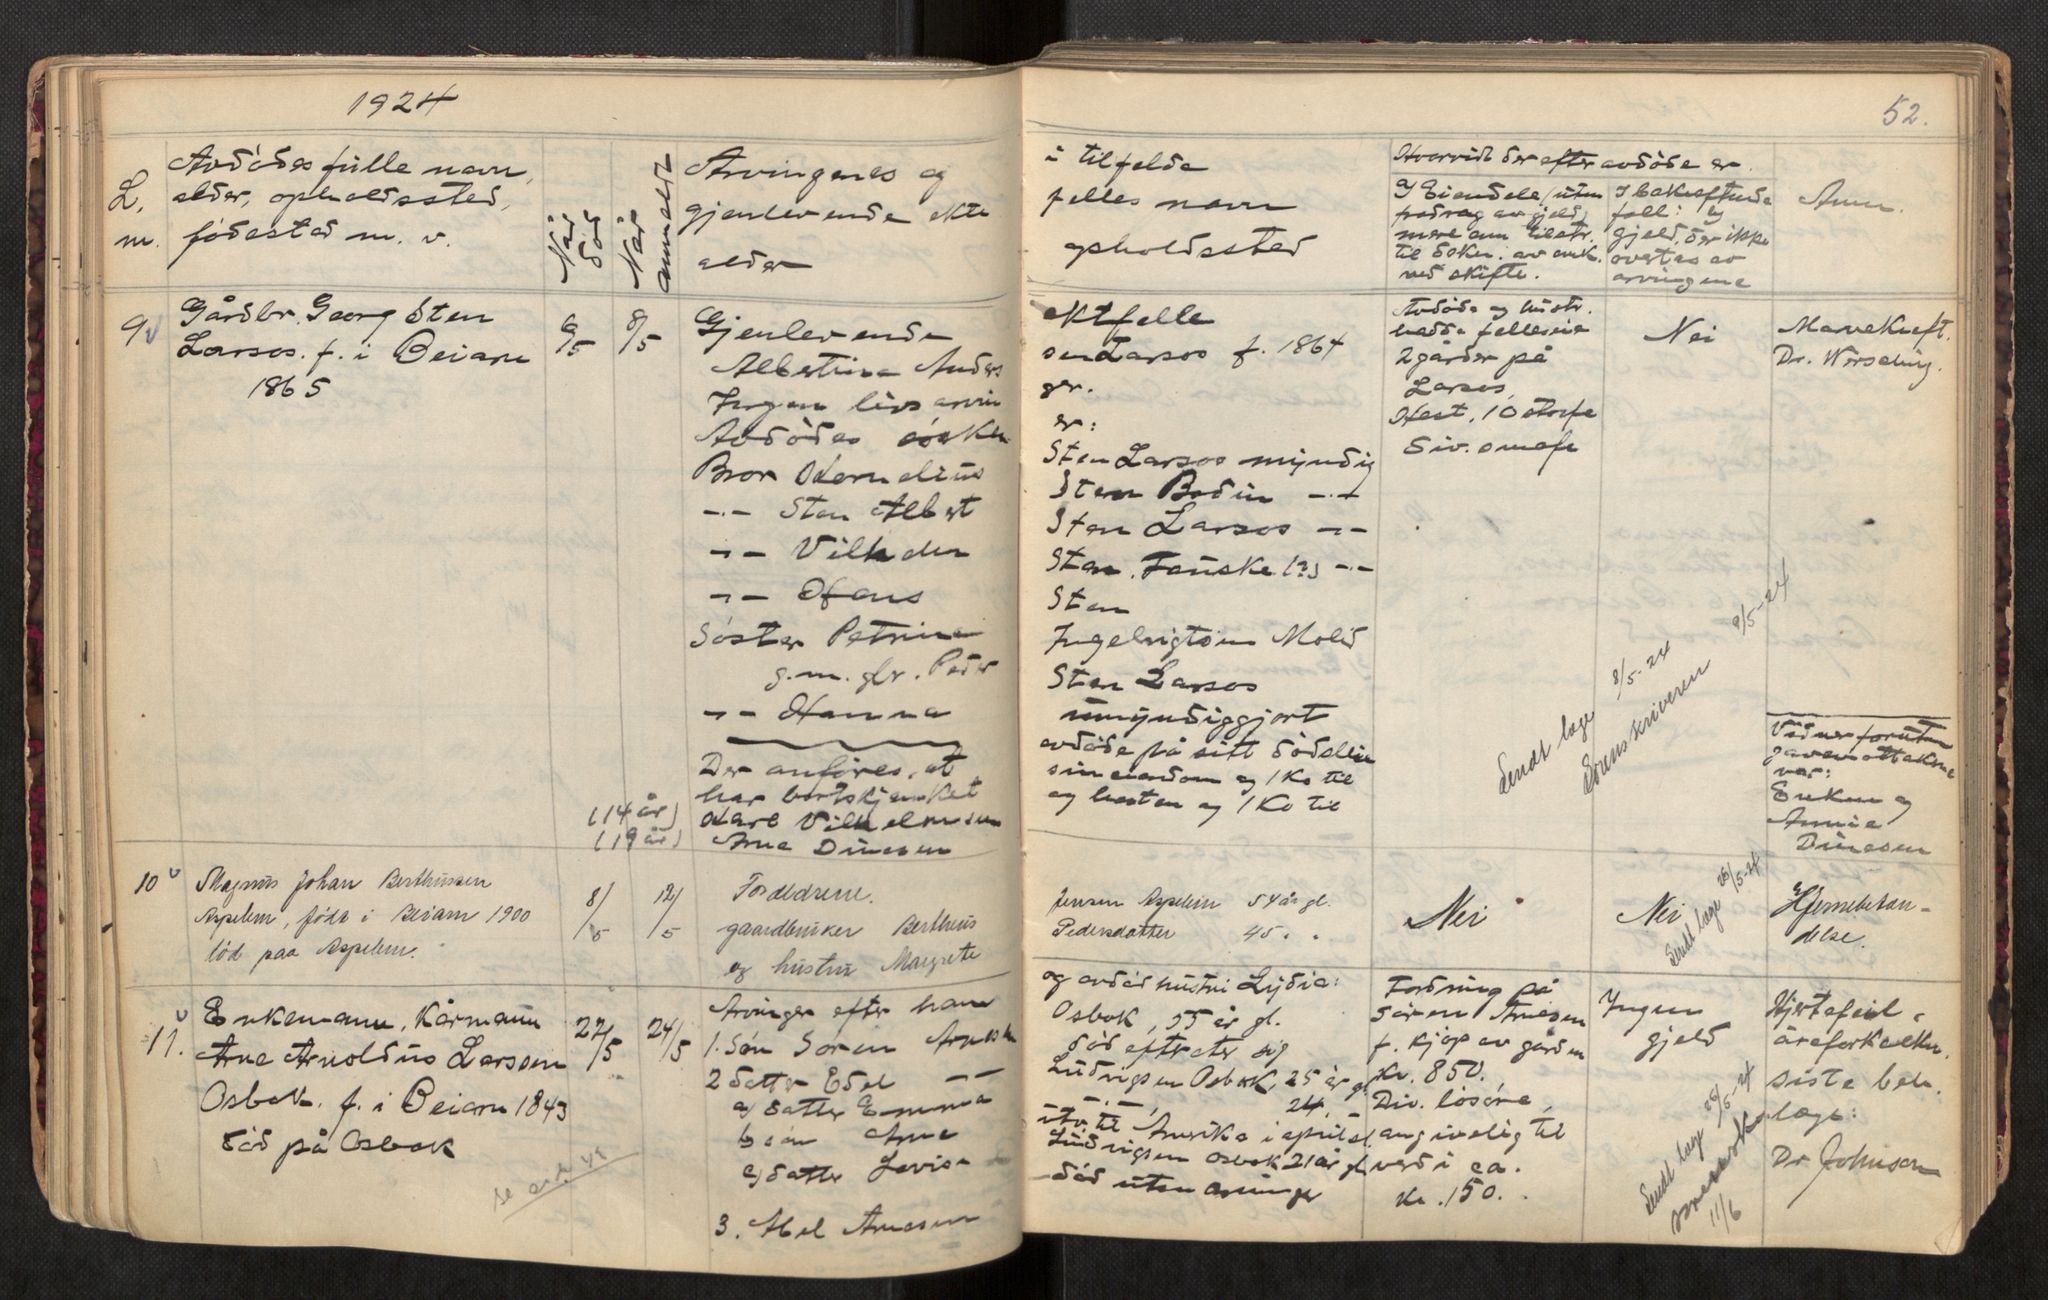 1924
52.
L.
m.
Avdödes fulle navn,
alder, opholdssted,
fødested m. v.
Når
död
Når
anmeldt
Arvingenes og
gjenlevende ekte
alder
i tilfelde
felles navn
opholdssted
Hvorvidt der efter avdöde er
a) Eiendele (uten
fradrag av gjeld)
mere enn tilstr.
til dekn. av omk.
ved skifte.
I bekreftende
fall: og
gjeld, der ikke
overtas av
arvingene
Anm.
9
Gårdbr. Georg Sten
Larsos. f. i Beiarn
1865
6/5
8/5
Gjenlevende
Albertine Anders
Ingen livsarvin
Avdödes sösken
Bror Kornelius
-"- Sten Albert
-"- Vilh den
-"-
Söster Petrine
g.m. gbr. Peder
-"- Hanna
Der anföres, at
har bortskjenket
(14 år) Karl Vilhelmsen
(19 år) Arne Dinesen
ektfelle
sen Larsos f. 1864
ger.
er:
Sten Larsos myndig
Sten Bodin -"-
Sten Larsos -"-
Sten, Fauske (?) -"-
Sten
Ingebrigtsen Molid
Sten Larsos
umyndiggjort
avdöde på sitt dödsleie
sin eiendom og 1 Ko til
og hesten og 1 Ko til
Avdöde og hustr.
hadde felleseie
2 gårder på
Larsos,
Hest, 10 storfe
Div. småfe
Nei
Sendt lage 8/5-24
Sorenskriveren 9/5-24
Marvekreft.
Dr. Wirsching.
Vidner foruten
gavemottakerne
var:
Enken og
Annie
Dinesen
10
Magnus Johan Berthussen
Aspelem, född i Beiarn 1900
död paa Aspelem.
8/5
12/5
Foreldrene.
gaardbruker Bertheus
og hustru Margrete
Jensen Aspelem 54 år gl.
Pedersdatter 45 " "
Nei
Nei
Sendt lage 26/5-24
Hjernebetæn-
delse.
11.
Enkemann, Kårmann
Arne Arnoldus Larssen
Osbak. f. i Beiarn 1843
död på Osbak
se ark 49
22/5
24/5
Arvinger efter ham
1. Sön Sören Arnesen
2 datter Edel -"-
a) datter Emma
b sön Arne
c) datter Lovise
3. Abel Arnesen
og avdöd hustru Lydia:
Osbak, 55 år gl.
död efterlater sig
Ludvigsen Osbak, 25 år gl
-"- -"- , 24, -
utv. til Amerika i april d.å.
Ludvigsen Osbak 21 år gl
död uten arvinger
Fordring på
Sören Arnesen
f. kjöp av gården
Kr. 850.
Div. lösöre,
angivelig til
verdi ca.
Kr. 150.
Ingen
gjeld
Sendt lage 26/5-24
11/6
Hjertefeil,
åreforkalkn.
siste beh.
læge:
Dr Johnsen